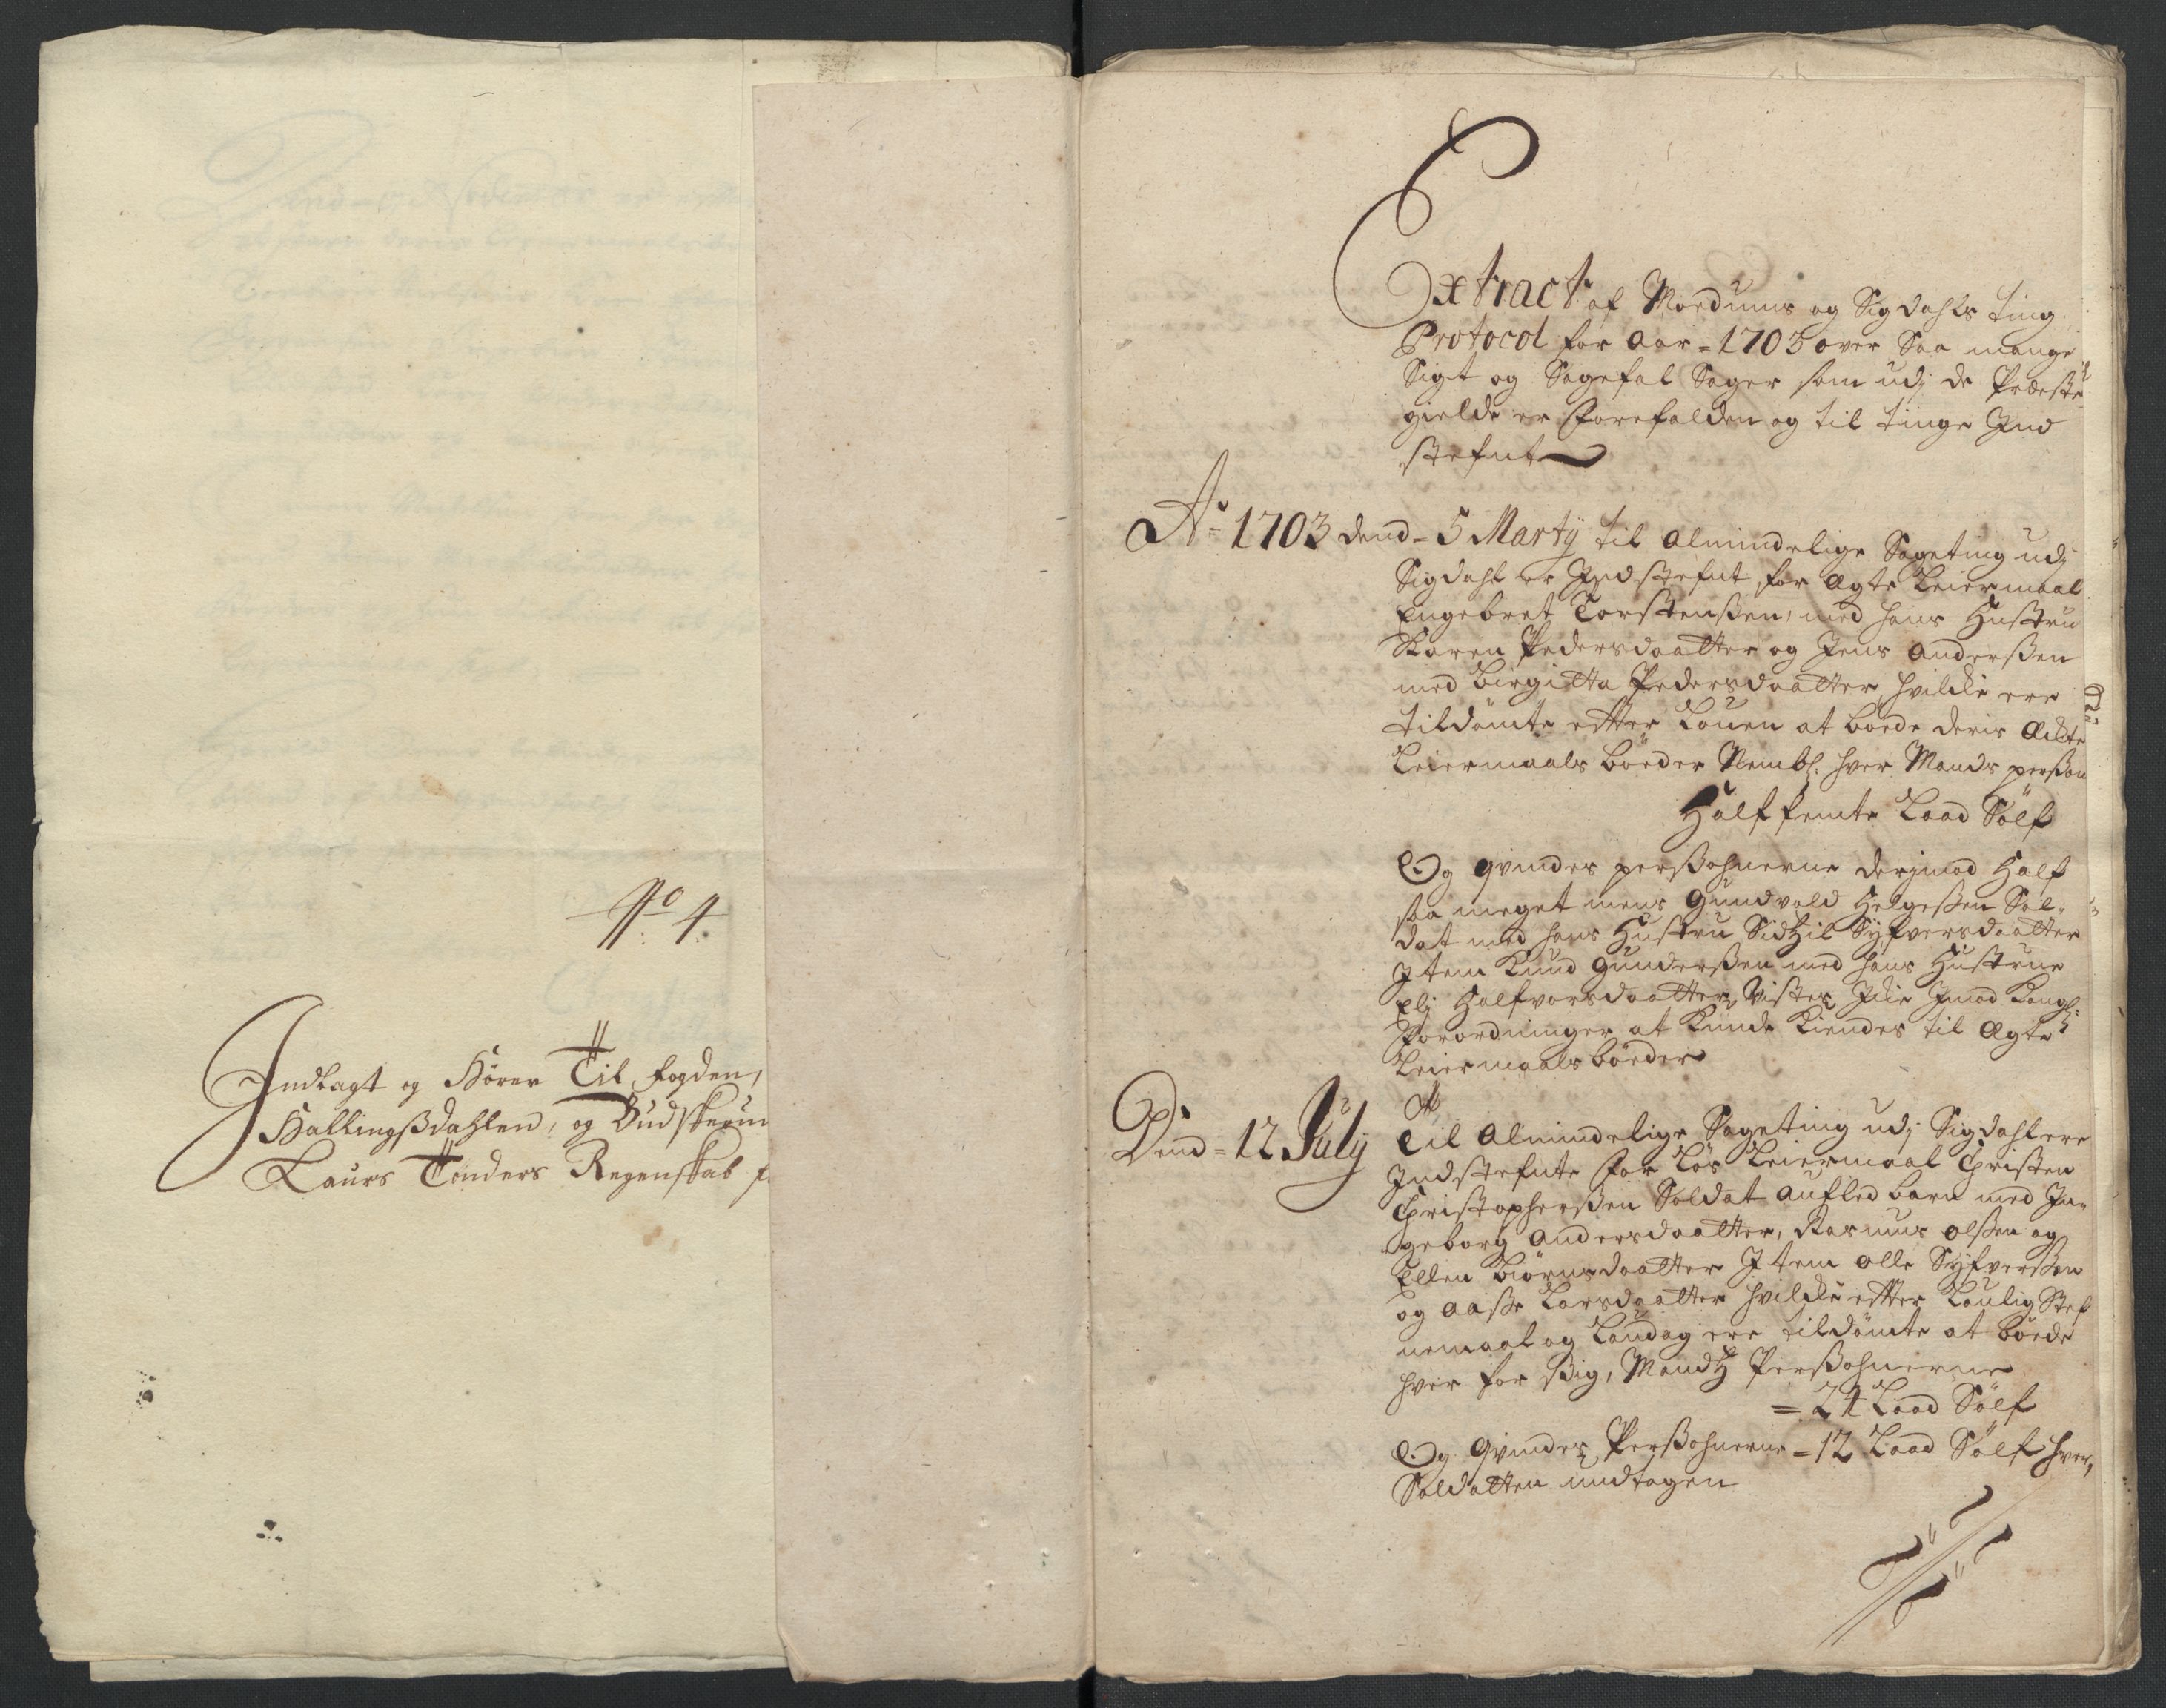 No 4
Indlagt og Hörer Til fogden,
Hallingßdahlen, og Budskerun
Laurs Tønders Regenskab f
Extract af Modums og Sigdahls ting
Protocol for Aar = 1703 over Saa mange
Sigt og Sagefal Sager som udj de Præste
gielde er Forefalden og til tinge Ind
stefnt
Ao 1703 dend = 5 Martij til Almindelige Sageting udj
Sigdahl er Indstefnt for Ægte Leiermaal
Engebret Torstenßen, med hans Hustru
Karen Pedersdaatter og Jens Anderßen
med Birgitta Pedersdaatter, hvilke ere
tildömte efter Louen at böede deris Ækte
Leiermaals böeder Nembl: hver Mands perßon
Half femte Laad Sölf
Og qvindes perßohnerne derjmod Half
saa meget mens Gundvold Helgeßen Sol-
dat med hans Hustru Sidzil Syfversdaatter
Item Knud Gunderßen med hans Hustrue
Eli Halfvorsdaatter, Vistes Icke Imod Kongl:
Forordninger at kunde kiendes til Ægte
Leiermaals böeder
Dend = 12 Julij Til Almindelige Sageting udj Sigdahl ere
Indstefnte For Lös Leiermaal Christen
Christopherßen Soldat aufled barn med In-
geborg Andersdaatter, Rasmus Olßen og
Ellen Biörnsdaatter Item Olle Syfverßen
og Aaße Larsdaatter hvilke efter Loulig Stef
nemaal og Laudag ere tildömte at böede
hver for ßig, Mandz Perßohnerne
= 24 Laad Sölf
Og Qvindes Perßohnerne = 12 Laad Sölf hver,
Soldatten undtagen